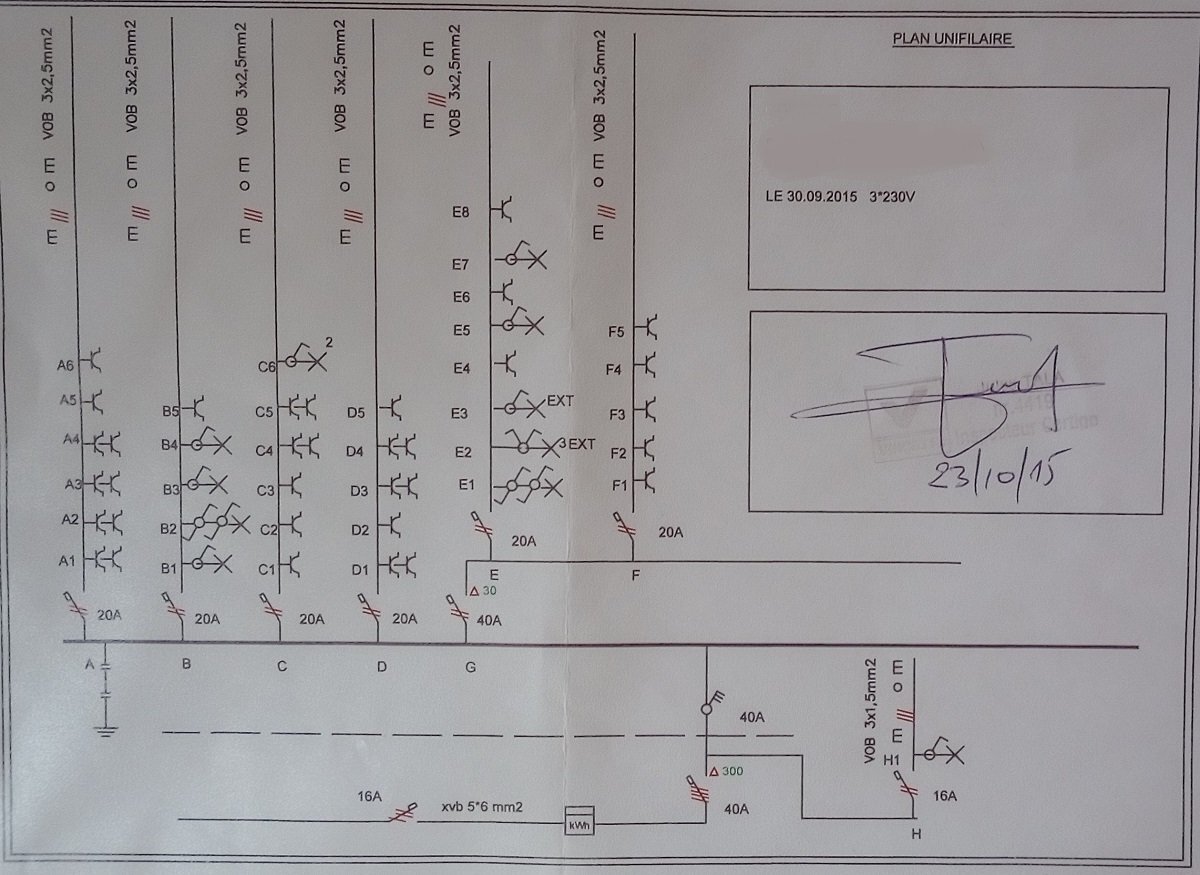 PLAN UNIFILAIRE
LE 30.09.2015 3*230V
23/10/15
VOB 3x2,5mm2
VOB 3x2,5mm2
VOB 3x2,5mm2
VOB 3x2,5mm2
VOB 3x2,5mm2
VOB 3x2,5mm2
A6
A5
A4
A3
A2
A1
20A
A
B5
B4
B3
B2
B1
20A
B
C6
2
C5
C4
C3
C2
C1
20A
C
D5
D4
D3
D2
D1
20A
D
E8
E7
E6
E5
E4
E3 EXT
E2 3 EXT
E1
20A
E
Δ 30
40A
G
F5
F4
F3
F2
F1
20A
F
40A
Δ 300
40A
VOB 3x1,5mm2
H1
16A
H
16A
xvb 5*6 mm2
kWh